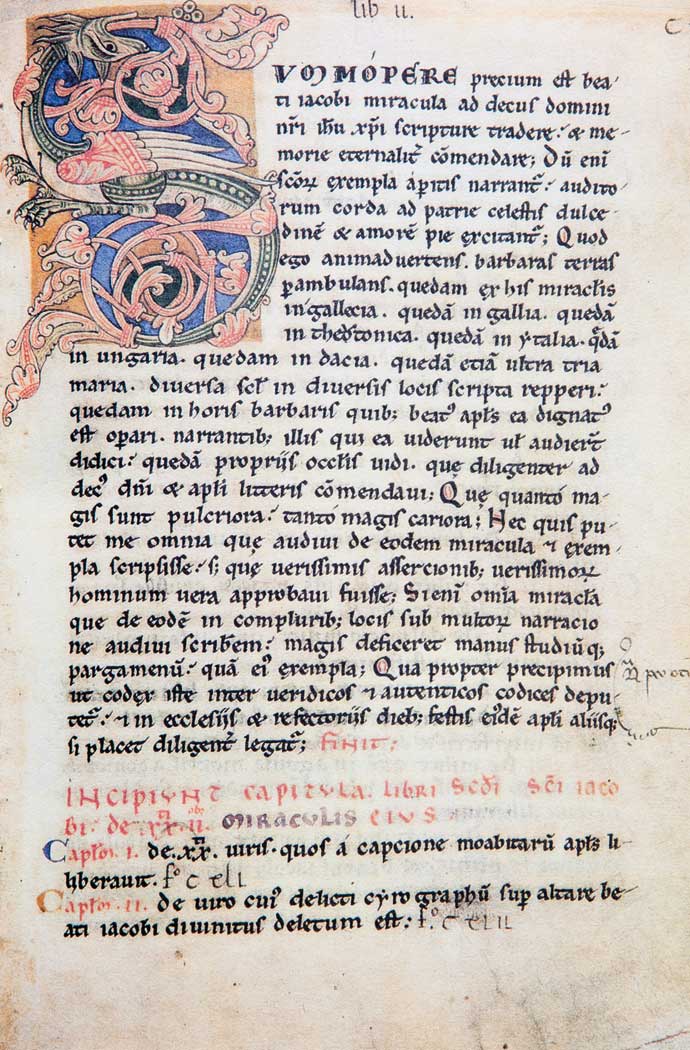 lib ii.
VOMMOPERE precium est bea-
ti iacobi miracula ad decus domini
nr̄i ih̄u xp̄i scripture tradere. & me-
morie eternalit̄ cōmendare; Dū eni
sc̄oꝝ exempla a p̄itis narrant̄. audito-
rum corda ad patrie celestis dulce-
dinē & amorē pie excitant̄; Quod
ego animadvertens. barbaras terras
p̄ambulans. quedam ex his miraclis
in gallecia. quedā in gallia. quedā
in theotonica. quedā in ytalia. q̄dā
in ungaria. quedam in dacia. quedā etiā ultra tria
maria. diversa scł in diversis locis scripta repperi.
quedam in horis barbaris quib; beatꝰ apłs ea dignatꝰ
est opari. narrantib; illis qui ea viderunt uł audierт̄
didici. quedā proprijs occlis vidi. quę diligenter ad
decꝰ dn̄i & apłi litteris cōmendavi; Quę quanto ma-
gis sunt pulcriora. tanto magis cariora; Nec quis pu-
tet me omnia quę audivi de eodem miracula ⁊ exem-
pla scripsisse. s; quę verissimis assercionib; verissimoꝝ
hominum vera approbavi fuisse; Si enī om̄ia miracła
que de eodē in complurib; locis sub multoꝝ narracio
ne audivi scribem̄. magis deficeret manus studiūq;
pargamenū. quā eiꝰ exempla; Qua propter precipimus
ut codex iste inter veridicos ⁊ autenticos codices depu-
tet̄. ⁊ in ecclesijs & refectorijs dieb; festis eiꝰdē apłi aliisq;
si placet diligent̄ legat̄; finit;
INCIPIUNT CAPITULA. libri Scd̄i Sc̄i iaco
bi. de .xx.ii. miraculis eius
Capłm̄. i. de .xx. viris. quos a capcione moabitarū apłs li-
liberavit. fº c xli
Capłm̄. ii. de viro cuiꝰ delicti cyrographū sup altare be-
ati iacobi divinitus deletum est. fº. c xlii